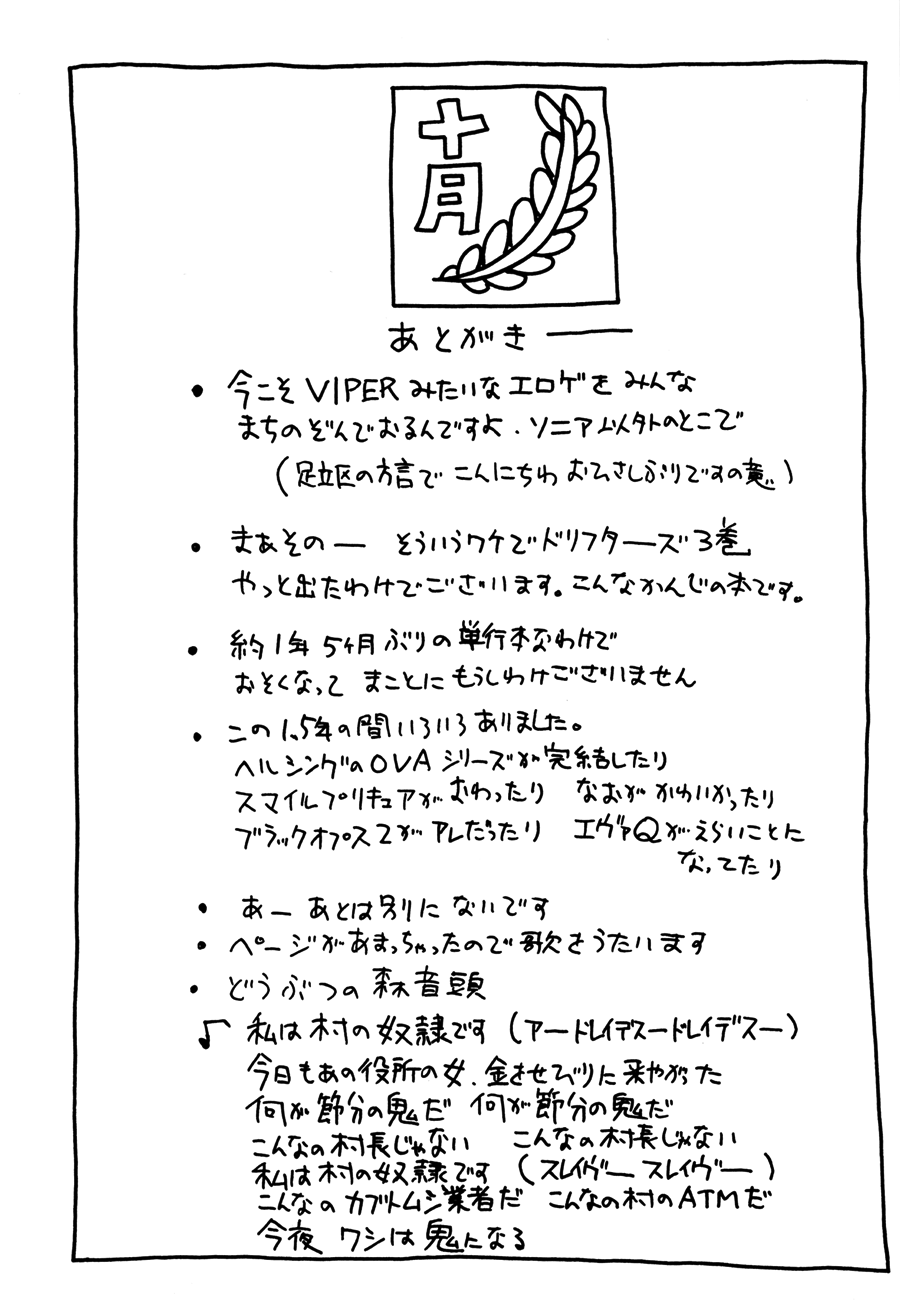 十月
あとがき――
・今こそVIPERみたいなエロゲをみんな
まちのぞんでおるんですよ．ソニア以外のとこで
(足立区の方言で こんにちわ おひさしぶりですの意)
・まあそのー そういうワケでドリフターズ3巻
やっと出たわけでございます。こんなかんじの本です。
・約1年5ヶ月ぶりの単行本なわけで
おそくなって まことにもうしわけございません
・この1.5年の間いろいろありました。
ヘルシングのOVAシリーズが完結したり
スマイルプリキュアがおわったり なおがかわいかったり
ブラックオプス2がアレだったり エヴァQがえらいことに
なってたり
・あー あとは別にないです
・ページがあまっちゃったので歌をうたいます
・どうぶつの森音頭
♪ 私は村の奴隷です (アードレイデスードレイデスー)
今日もあの役所の女．金をせびりに来やがった
何が節分の鬼だ 何が節分の鬼だ
こんなの村長じゃない こんなの村長じゃない
私は村の奴隷です (スレイヴー スレイヴー)
こんなのカブトムシ業者だ こんなの村のATMだ
今夜 ワシは鬼になる